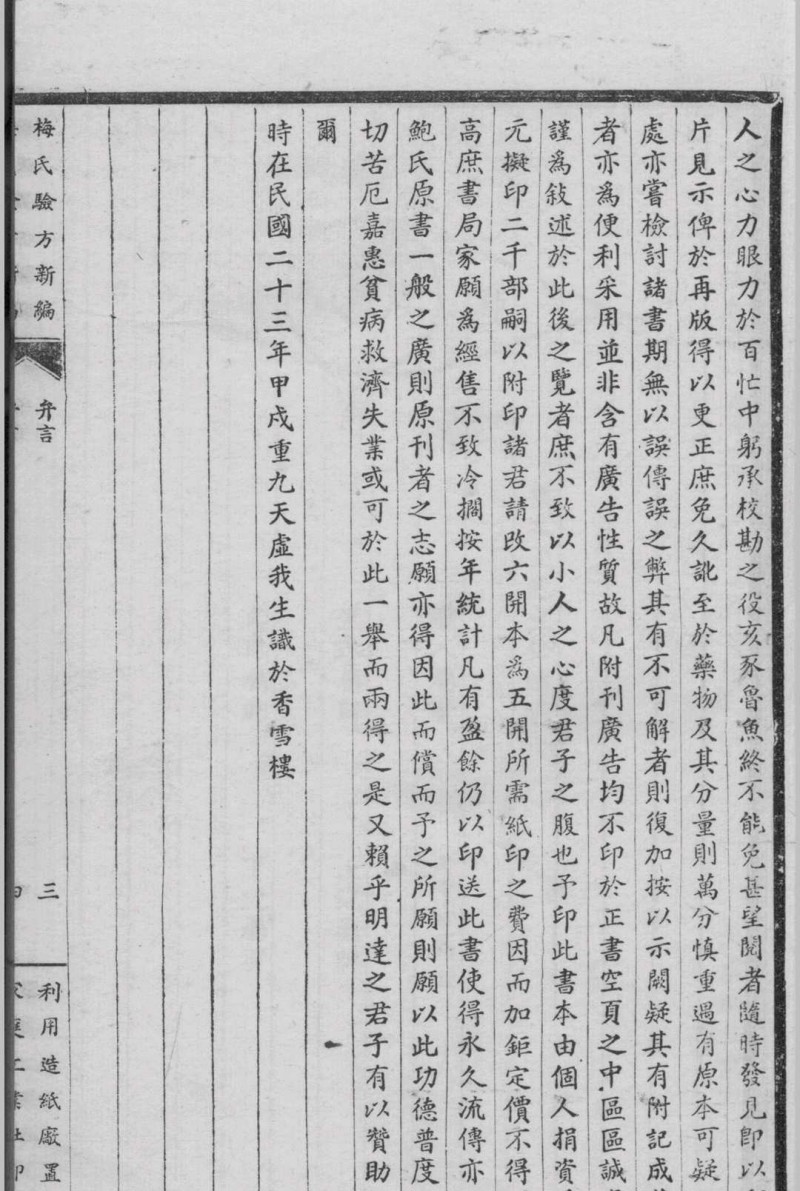 人之心力眼力於百忙中躬承校勘之役亥豕魯魚終不能免甚望閱者隨時發見卽以
片見示俾於再版得以更正庶免久訛至於藥物及其分量則萬分慎重遇有原本可疑
處亦嘗檢討諸書期無以誤傳誤之弊其有不可解者則復加按以示闕疑其有附記成
者亦爲便利采用並非含有廣告性質故凡附刊廣告均不印於正書空頁之中區區誠
謹爲敍述於此後之覽者庶不致以小人之心度君子之腹也予印此書本由個人捐資
元擬印二千部嗣以附印諸君請改六開本爲五開所需紙印之費因而加鉅定價不得
高庶書局家願爲經售不致冷擱按年統計凡有盈餘仍以印送此書使得永久流傳亦
鮑氏原書一般之廣則原刊者之志願亦得因此而償而予之所願則願以此功德普度
切苦厄嘉惠貧病救濟失業或可於此一舉而兩得之是又賴乎明達之君子有以贊助
爾
時在民國二十三年甲戍重九天虛我生識於香雪樓
梅氏驗方新編 弁言 三 利用造紙廠置